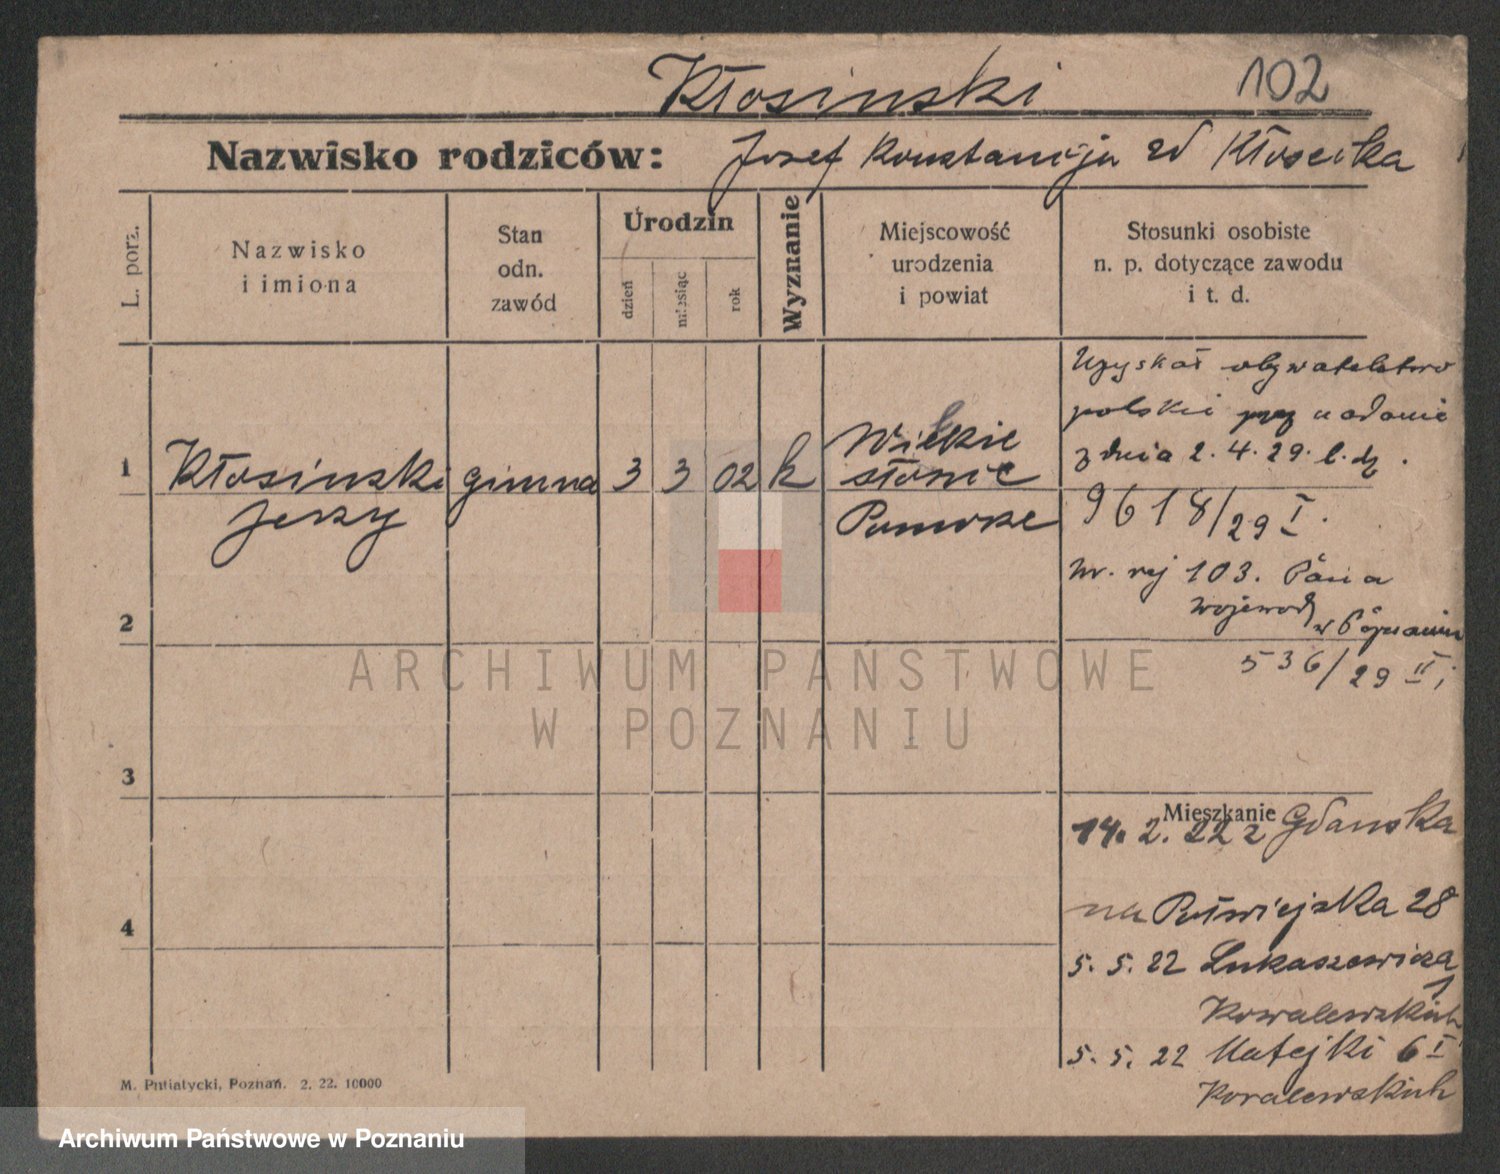 Kłosinski 102
Nazwisko rodziców: Josef Konstancja zd Kłosecka
L. porz.
Nazwisko
i imiona
Stan
odn.
zawód
Urodzin
dzień
miesiąc
rok
Wyznanie
Miejscowość
urodzenia
i powiat
Stosunki osobiste
n. p. dotyczące zawodu
i t. d.
1
Kłosinski
Jerzy
gimna
3 3 02
k
Wielkie
słonie
Pomorze
Uzyskał obywatelstwo
polskie przez nadanie
z dnia 2. 4. 29. l. dz.
9618/29 I.
nr. rej 103. Pana
Wojewody
w Poznaniu
536/29 II
2
3
4
Mieszkanie
14. 2. 22 z Gdanska
na Półwiejska 28
5. 5. 22 Lukaszewicza
1
Kowalewskich
5. 5. 22 Matejki 6 I
Kowalewskich
M. Putiatycki, Poznań. 2. 22. 10000
ARCHIWUM PAŃSTWOWE
W POZNANIU
Archiwum Państwowe w Poznaniu